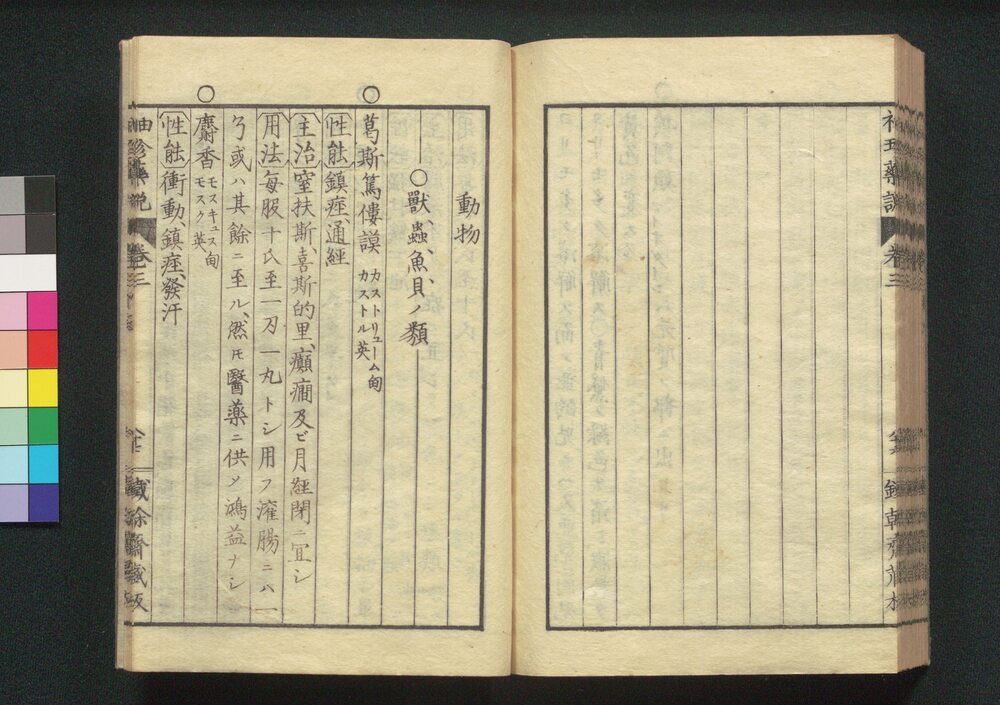 動物
○獸、蟲、魚貝ノ類
○
葛斯篤僂謨 カストリューム甸 カストル英
性能 鎮痙、通經
主治 窒扶斯、喜斯的里、癲癇及ビ月經閉ニ宜シ
用法 毎服十氏至一刃一丸トシ用フ灌腸ニハ一
或ハ其餘ニ至ル、然ﾓ醫藥ニ供〆鴻益ナシ
○
麝香 モスキュス甸 モスク英
性能 衝動、鎮痙、發汗
袖珍藥說 卷三